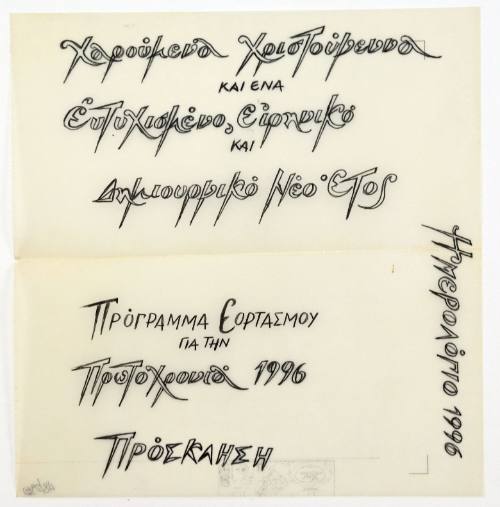 Χαρούμενα Χριστούγεννα
ΚΑΙ ΕΝΑ
Εὐτυχισμένο, Εἰρηνικό
ΚΑΙ
Δημιουργικό Νέο Ἔτος
ΠΡΌΓΡΑΜΜΑ ΕΟΡΤΑΣΜΟΥ
ΓΙΑ ΤΗΝ
Πρωτοχρονιά 1996
ΠΡΌΣΚΛΗΣΗ
Ἡμερολόγιο 1996